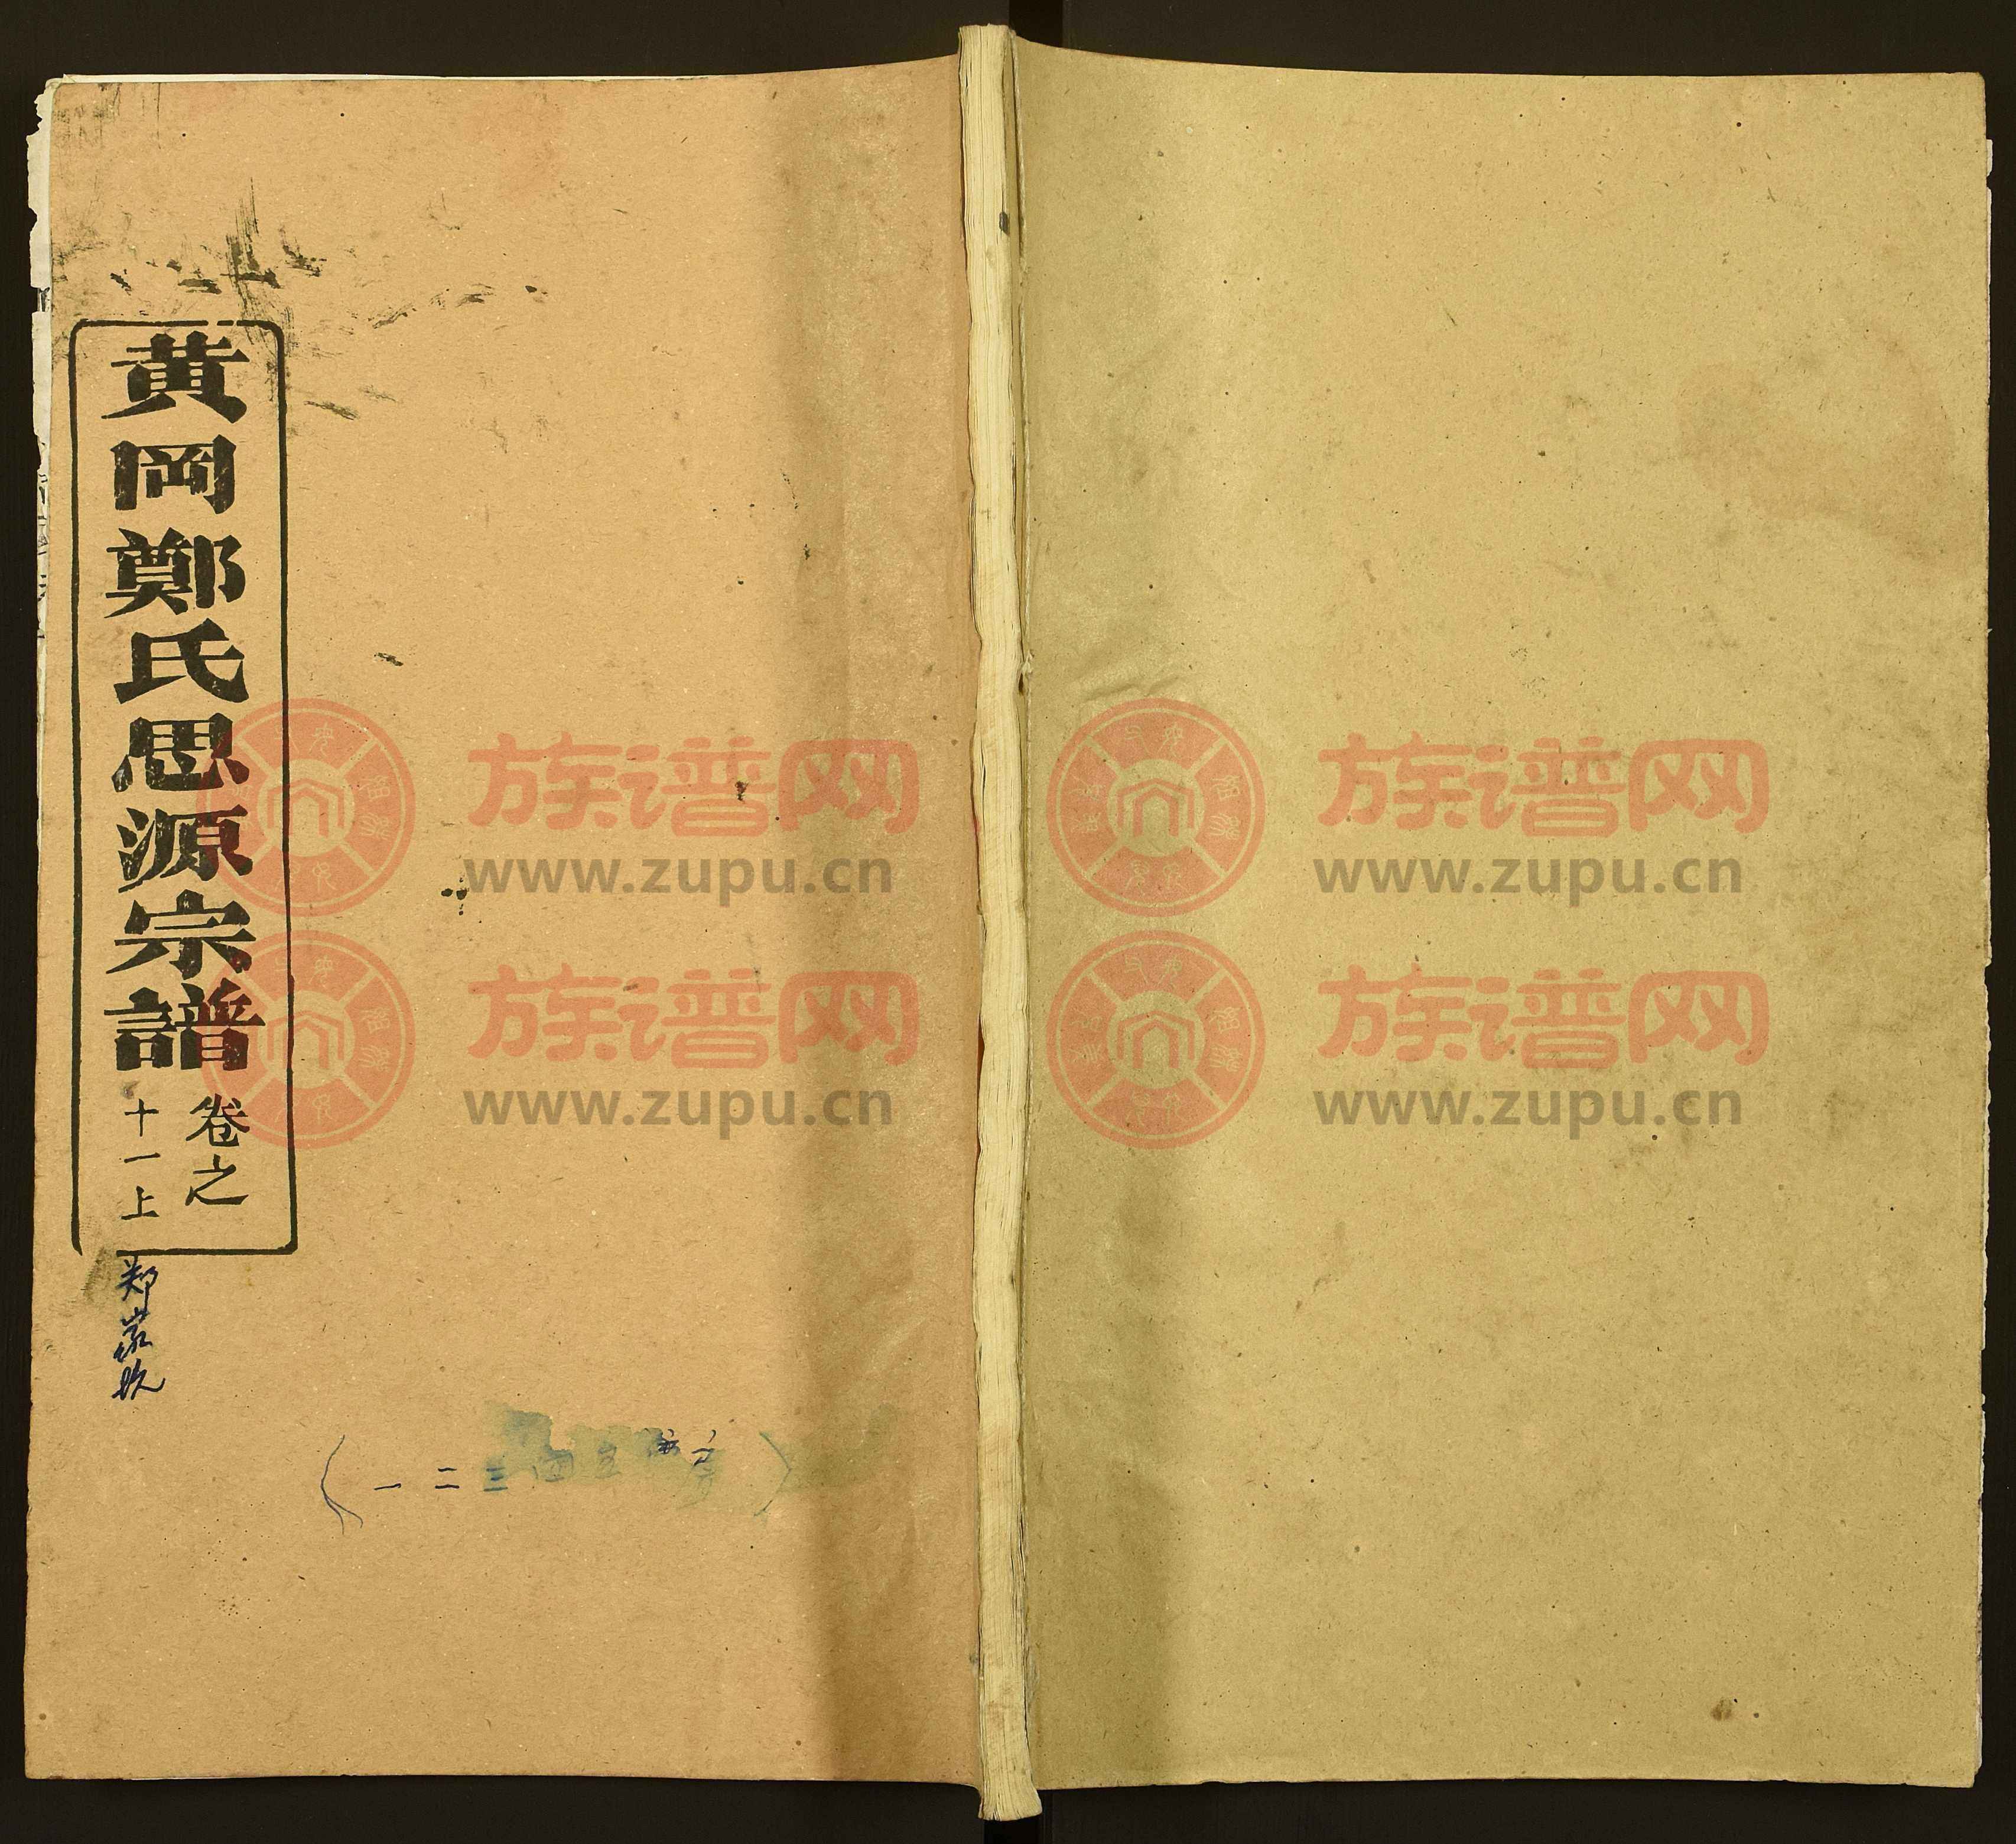 黃岡鄭氏思源宗譜
卷之
十一上
郑
一二三四五
族谱网
www.zupu.cn
族谱网
www.zupu.cn
族谱网
www.zupu.cn
族谱网
www.zupu.cn